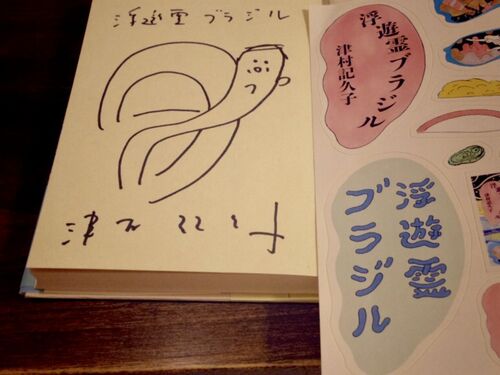 浮遊霊ブラジル
津村記久子
浮遊霊ブラジル
津村記久子
浮遊霊
ブラジル